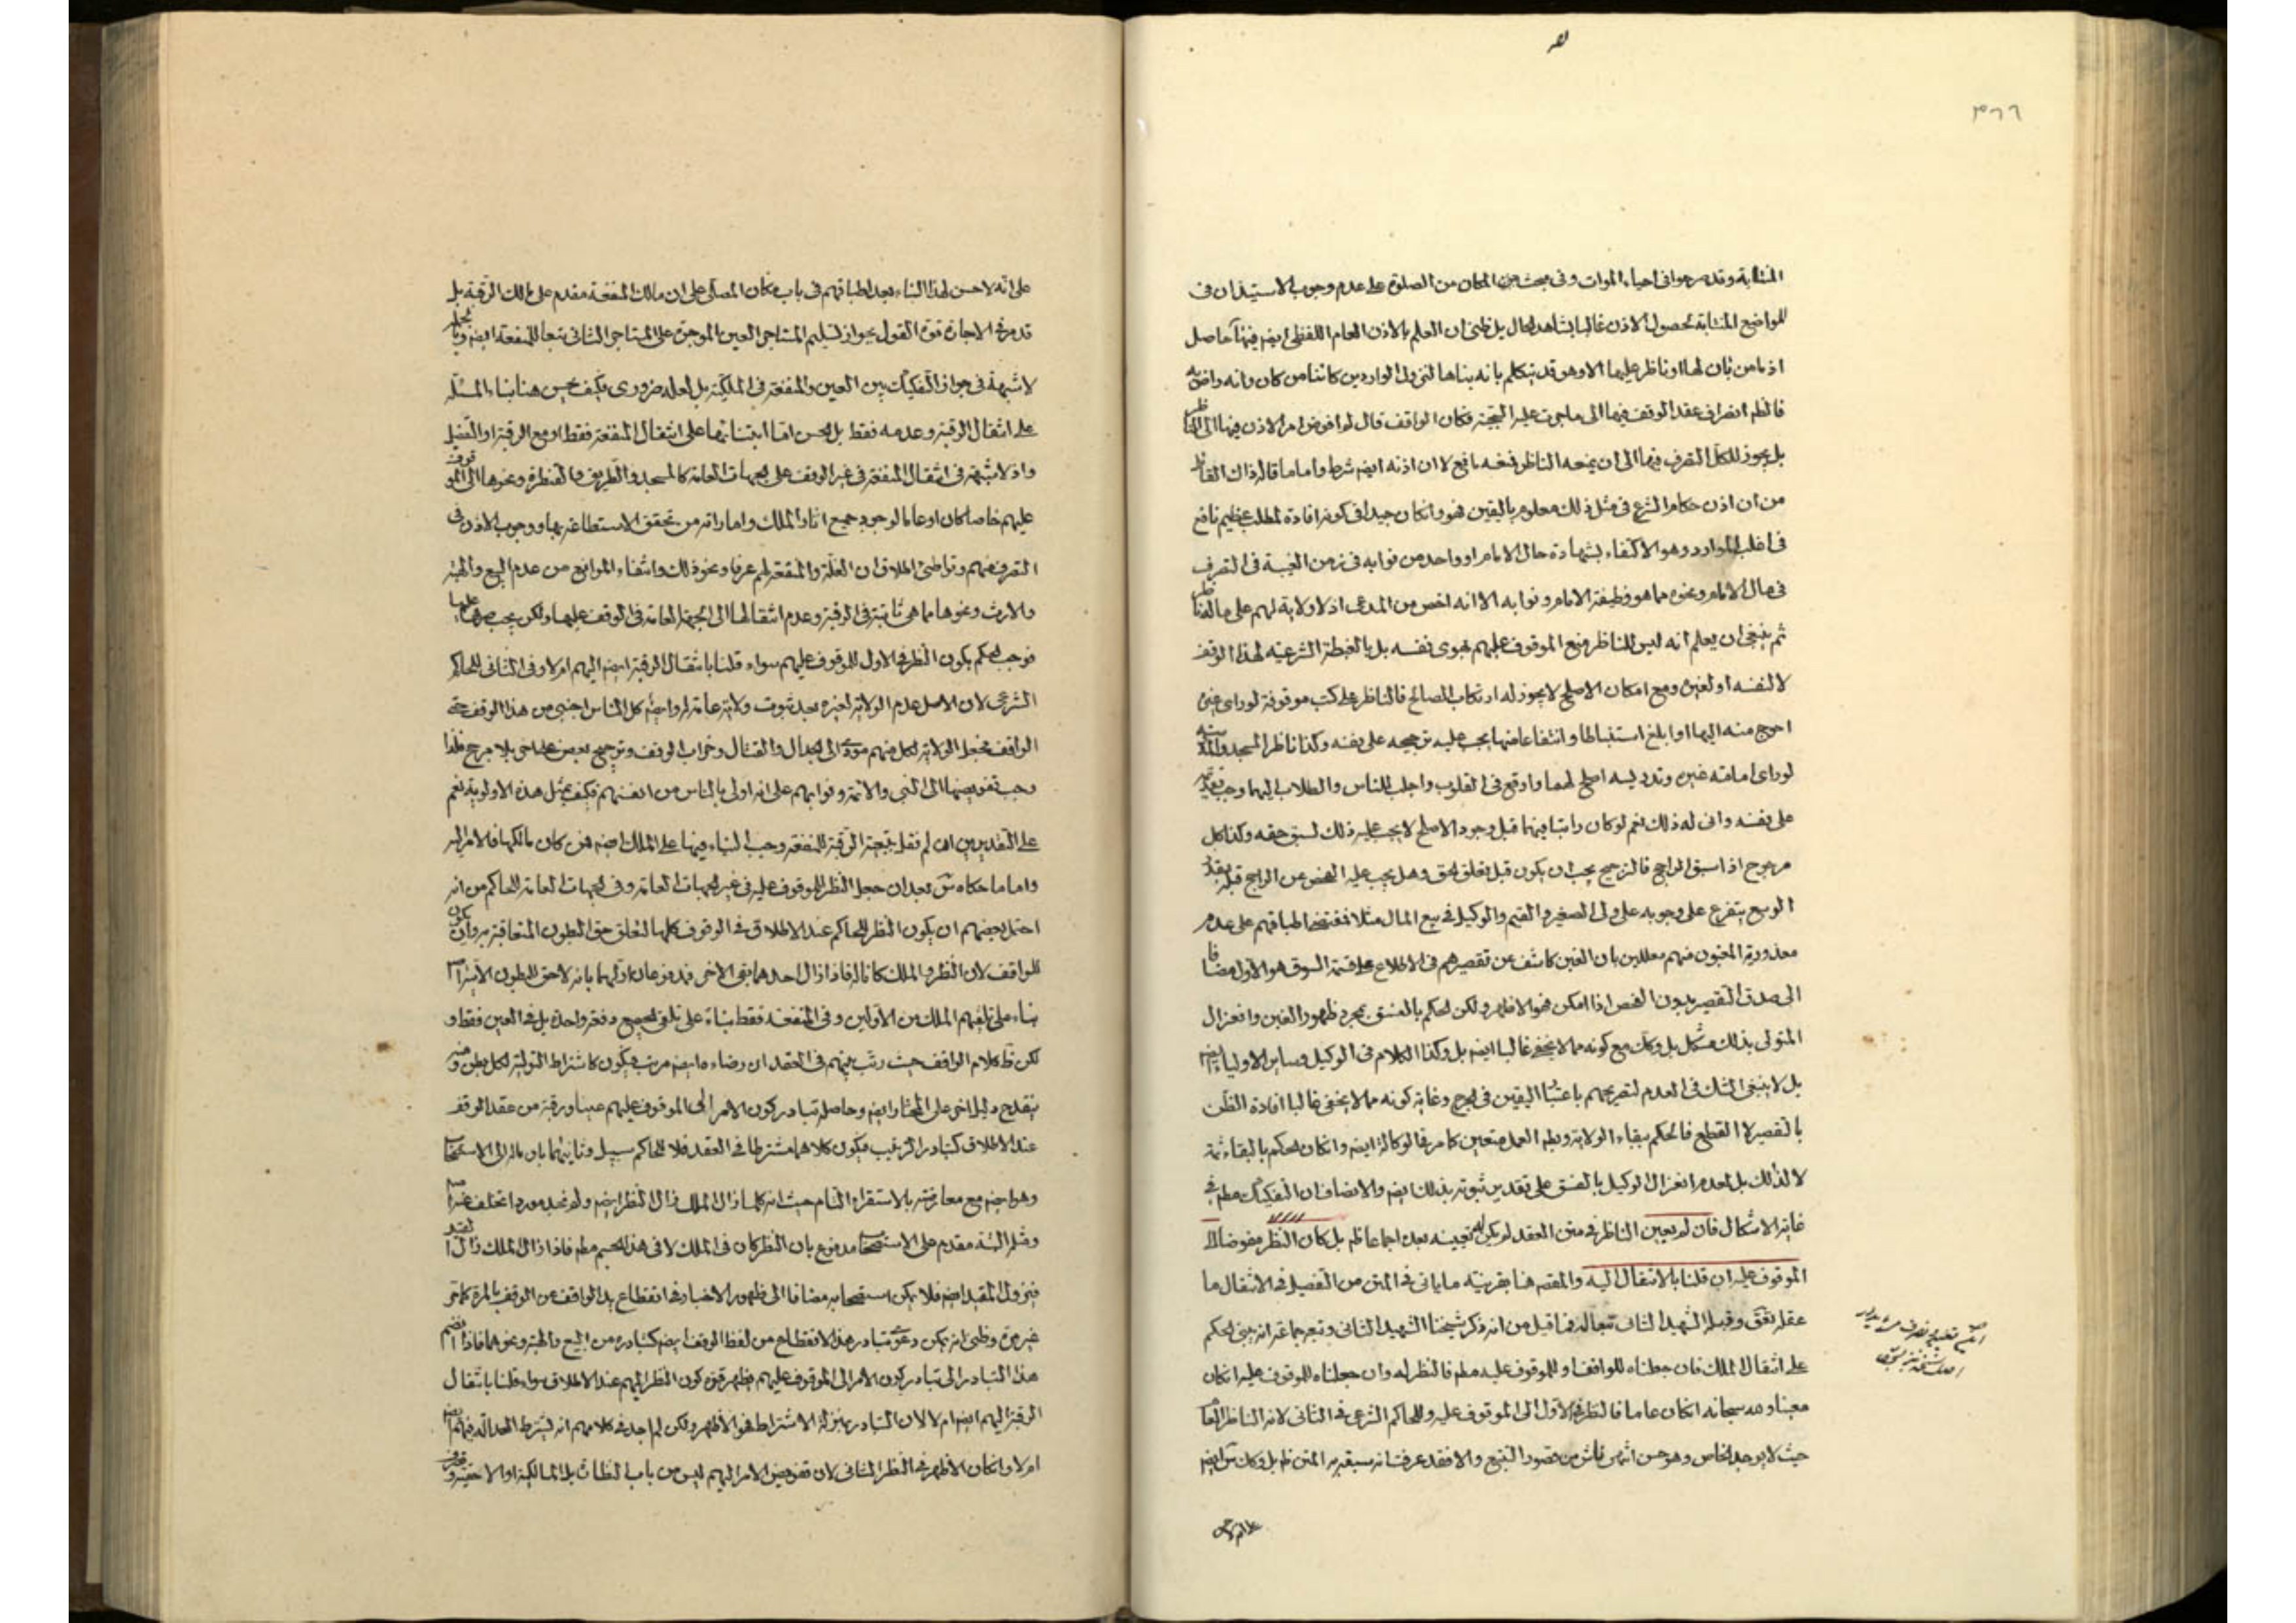 ٣٦٦
المشابة وقد مر جوا فى احياء الموات وفى بحث من المكان من الصلوة على عدم وجوب الاستيذان فى
المواضع المشابة لحصول الاذن غالبا بشاهد الحال بل ظنى ان العلم بالاذن العام اللفظى ايضم فيها حاصل
اذ ما من بان لها او ناظر عليها الا وهو قد يتكلم بانه بناها لنزول الواردين كائنا من كان وانه راض به
فالظم انصراف عقد الوقف فيها الى ما جرت عليه السجية فكان الواقف قال لو افوض امر الاذن فيها الى
بل يجوز للكل التصرف فيها الى ان يمنعه الناظر فمنعه مانع لا ان اذنه ايضم شرط واما ما قاله ذاك
من ان اذن حكام الشرع فى مثل ذلك معلوم باليقين فهو وانكان جيدا فى كونه افادة لمطلب عظيم نافع
فى اغلب الموارد وهو الاكتفاء بشهادة حال الامام او واحد من نوابه فى زمن الغيبة فى التصرف
فى مال الامام ونحوه مما هو وظيفة الامام ونوابه الا انه اخص من المدعى اذ لا ولاية لهم على ما
ثم ينبغى ان يعلم انه ليس للناظر منع الموقوف عليهم بهوى نفسه بل بالغبطة الشرعية لهذا الوقف
لا لنفسه او لغيره ومع امكان الاصلح لا يجوز له ارتكاب المصالح فالناظر على كتب موقوفة لو راى غيره
احوج منه اليها او ابلغ استنباطا وانتفاعا منها يجب عليه ترجيحه على نفسه وكذا ناظر المسجد والمدرسة
لو راى امامة غيره وتدريسه اصلح لهما واوقع فى القلوب واجلب للناس والطلاب اليهما وجب تقديمه
على نفسه وانى له ذلك نعم لو كان راتبا فيهما قبل وجود الاصلح لا يجب عليه ذلك لسبق حقه وكذا كل
مرجوح اذا سبق الراجح فالترجيح يجب ان يكون قبل تعلق الحق وهل يجب عليه الفحص عن الراجح قبله بقدر
الوسع يتفرع على وجوبه على ولى الصغير والقيم والوكيل فى بيع المال مثلا فمقتضى اطباقهم على عدم
معذورية المغبون منهم معللين بان الغبن كاشف عن تقصيرهم فى الاطلاع على قيمة السوق هو الاول مضافا
الى صدق التقصير بدون الفحص اذا امكن فهو الاظهر ولكن الحكم بالفسق بمجرد ظهور الغبن وانعزال
المتولى بذلك مشكل بل وكك مع كونه مما لا يخفى غالبا ايضم بل وكذا الكلام فى الوكيل وساير الاولياء ايضم
بل لا ينبغى الشك فى العدم لتصريحهم باعتبار اليقين فى الجرح وغاية كونه مما لا يخفى غالبا افادة الظن
بالتقصير لا القطع فالحكم ببقاء الولاية وبطم العمل متعين كما مر فى الوكالة ايضم وانكان الحكم بالبقاء ثمة
لا لذلك بل لعدم انعزال الوكيل بالفسق على تقدير ثبوته بذلك ايضم والانصاف ان التفكيك مطم فى
غاية الاشكال فان لم يعين الناظر فى متن العقد لم يكن له تعيينه بعده اجماعا ظم بل كان النظر مفوضا الى
الموقوف عليه ان قلنا بالانتقال اليه والمقصم هنا بقرينة ما ياتى فى المتن من التفصيل فى الانتقال ما
عقله تفق وقبله الشهيد الثانى تبعا له فما قيل من انه ذكر شيخنا الشهيد الثانى وتبعه جماعة انه يبنى الحكم
على انتقال الملك فان جعلناه للواقف او للموقوف عليه مطم فالنظر له وان جعلناه للموقوف عليه انكان
معينا ولله سبحانه انكان عاما فالنظر فى الاول الى الموقوف عليه وللحاكم الشرعى فى الثانى لانه الناظر العام
حيث لا يوجد الخاص وهو حسن انتهى ناش من قصور التتبع والا فقد عرفت انه سبقه به المتن ظم بل وكان ايضم
على انه لا حسن لهذا البناء بعد اطباقهم فى باب مكان المصلى على ان مالك المنفعة مقدم على مالك الرقبة بل
قد مر فى الاجارة قوة القول بجواز تسليم المستاجر العين الموجرة على المستاجر الثانى تبعا للمنفعة ايضم وبالجملة
لا شبهة فى جواز التفكيك بين العين والمنفعة فى الملكية بل لعله ضرورى فكيف يحسن هنا بناء المسئلة
على انتقال الرقبة وعدمه فقط بل يحسن اما ابتنائها على انتقال المنفعة فقط او مع الرقبة او التفصيل
واذ لا شبهة فى انتقال المنفعة فى غير الوقف على الجهات العامة كالمسجد والطريق والقنطرة ونحوها الى الموقوف
عليهم خاصا كان او عاما لوجود جميع اثار الملك واماراته من تحقق الاستطاعة بها ووجوب الاذن فى
التصرف منهم وتواطئ اطلاق ان الغلة والمنفعة لهم عرفا ونحو ذلك وانتفاء الموانع من عدم البيع والهبة
والارث ونحوها مما هى ثابتة فى الرقبة وعدم انتقالها الى الجهة العامة فى الوقف عليها ولكن يجب صرفها عليها
فوجب الحكم بكون النظر فى الاول للموقوف عليهم سواء قلنا بانتقال الرقبة ايضم اليهم ام لا وفى الثانى للحاكم
الشرعى لان الاصل عدم الولاية لغيره بعد ثبوت ولاية عامة له وايضم كل الناس اجنبى من هذا الوقف حتى
الواقف فجعل الولاية لكل منهم مؤد الى الجدال والقتال وخراب الوقف وترجيح بعض على اخر بلا مرجح فلذا
وجب تفويضها الى النبى والائمة ونوابهم على انه اولى بالناس من انفسهم فكيف بمثل هذه الاولوية نعم
على التقديرين ان لم نقل بتبعية الرقبة للمنفعة وجب البناء فيها على الملك ايضم فمن كان مالكها فالامر اليه
واما ما حكاه بعد ان جعل النظر للموقوف عليه فى غير الجهات العامة وفى الجهات العامة للحاكم من انه
احتمل بعضهم ان يكون النظر للحاكم عند الاطلاق فى الوقوف كلها لتعلق حق البطون المتعاقبة به وان يكون
للواقف لان النظر والملك كانا له فاذا زال احدهما بقى الاخر فمدفوعان اولهما بانه لا حق للبطون الاتية
بناء على تلقيهم الملك من الاولين وفى المنفعة فقط بناء على تلقى الجميع دفعة واحدة بل فى العين فقط و
لكن ظ كلام الواقف حيث رتب بينهم فى العقد ان رضاءه ايضم مرتب فيكون كاشتراط التولية لكل بطن ومنه
ينقدح دليل اخر على المختار ايضم وحاصله تبادر كون الامر الى الموقوف عليهم عينا ورقبة من عقد الوقف
عند الاطلاق كتبادر الترغيب فيكون كلاهما مشترطا فى العقد فلا للحاكم سبيل وثانيهما باوله الى الاستصحاب
وهو ايضم مع معارضته بالاستقراء التام حيث انه كلما زال الملك زال النظر ايضم ولم نجد موردا تخلف عنه
مقدم على الاستصحاب مدفوع بان النظر كان فى الملك لا فى هذا الجسم مطم فاذا زال الملك زال القيد
فيزول المقيد ايضم فلا يمكن استصحابه مضافا الى ظهور الاخبار فى انقطاع يد الواقف عن الوقف بالمرة كما مر
غير مرة وظنى انه يمكن دعوى تبادر هذا الانقطاع من لفظ الوقف ايضم كتبادره من البيع والهبة ونحوهما فاذا انضم
هذا التبادر الى تبادر كون الامر الى الموقوف عليهم فظهر قوة كون النظر اليهم عند الاطلاق سواء قلنا بانتقال
الرقبة اليهم ايضم ام لا لان التبادر بمنزلة الاشتراط فهو الاظهر ولكن لم اجد فى كلامهم انه يشترط العدالة فيهم ايضم
ام لا وانكان الاظهر فى النظر الثانى لان تفويض الامر اليهم ليس من باب النظارة بل المالكية او الاحقية